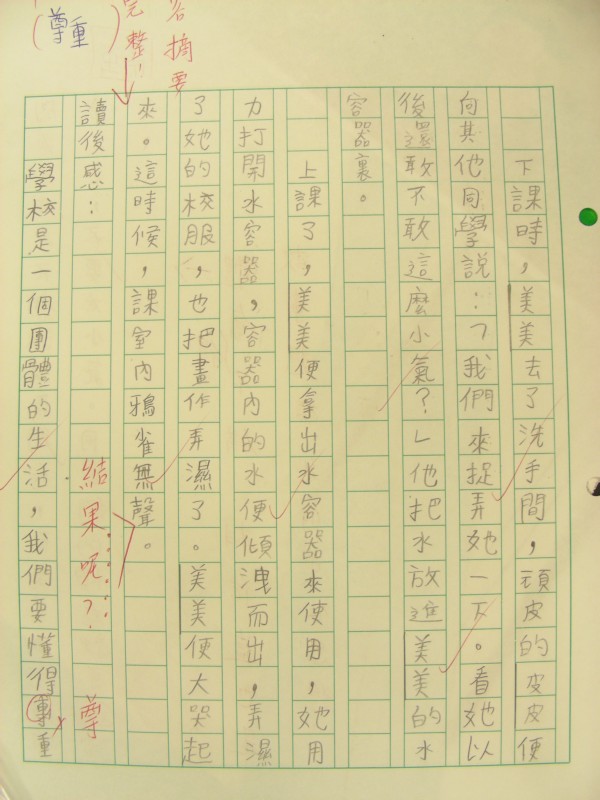 摘要
完整！
（尊重）
下課時，美美去了洗手間，頑皮的皮皮便
向其他同學說：「我們來捉弄她一下。看她以
後還敢不敢這麼小氣？」他把水放進美美的水
容器裏。
上課了，美美便拿出水容器來使用，她用
力打開水容器，容器內的水便傾洩而出，弄濕
了她的校服，也把畫作弄濕了。美美便大哭起
來。這時候，課室內鴉雀無聲。
結果呢？
讀後感：
尊
學校是一個團體的生活，我們要懂得重